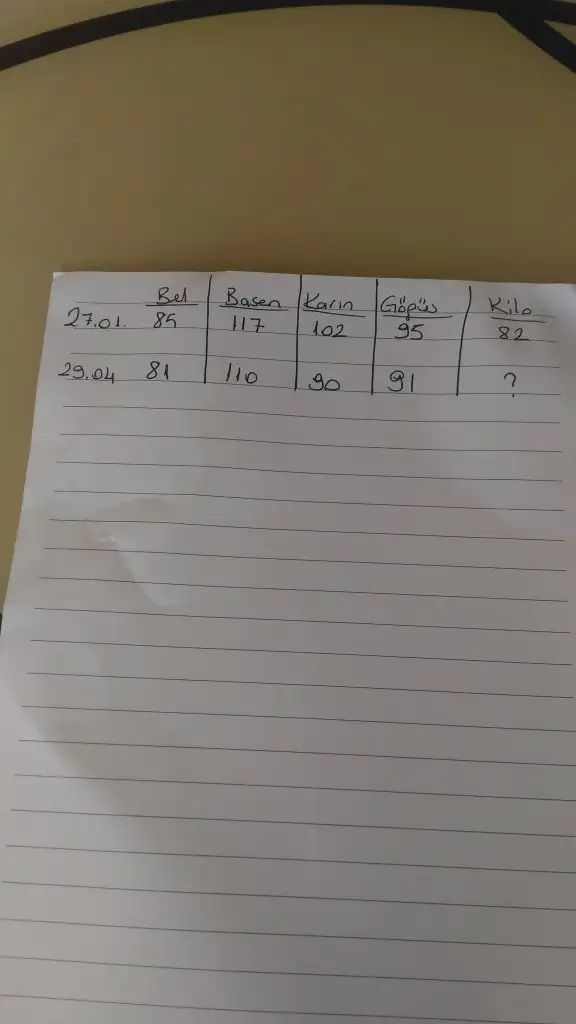 Bel Basen Karın Göğüs Kilo
27.01. 85 117 102 95 82
29.04 81 110 90 91 ?